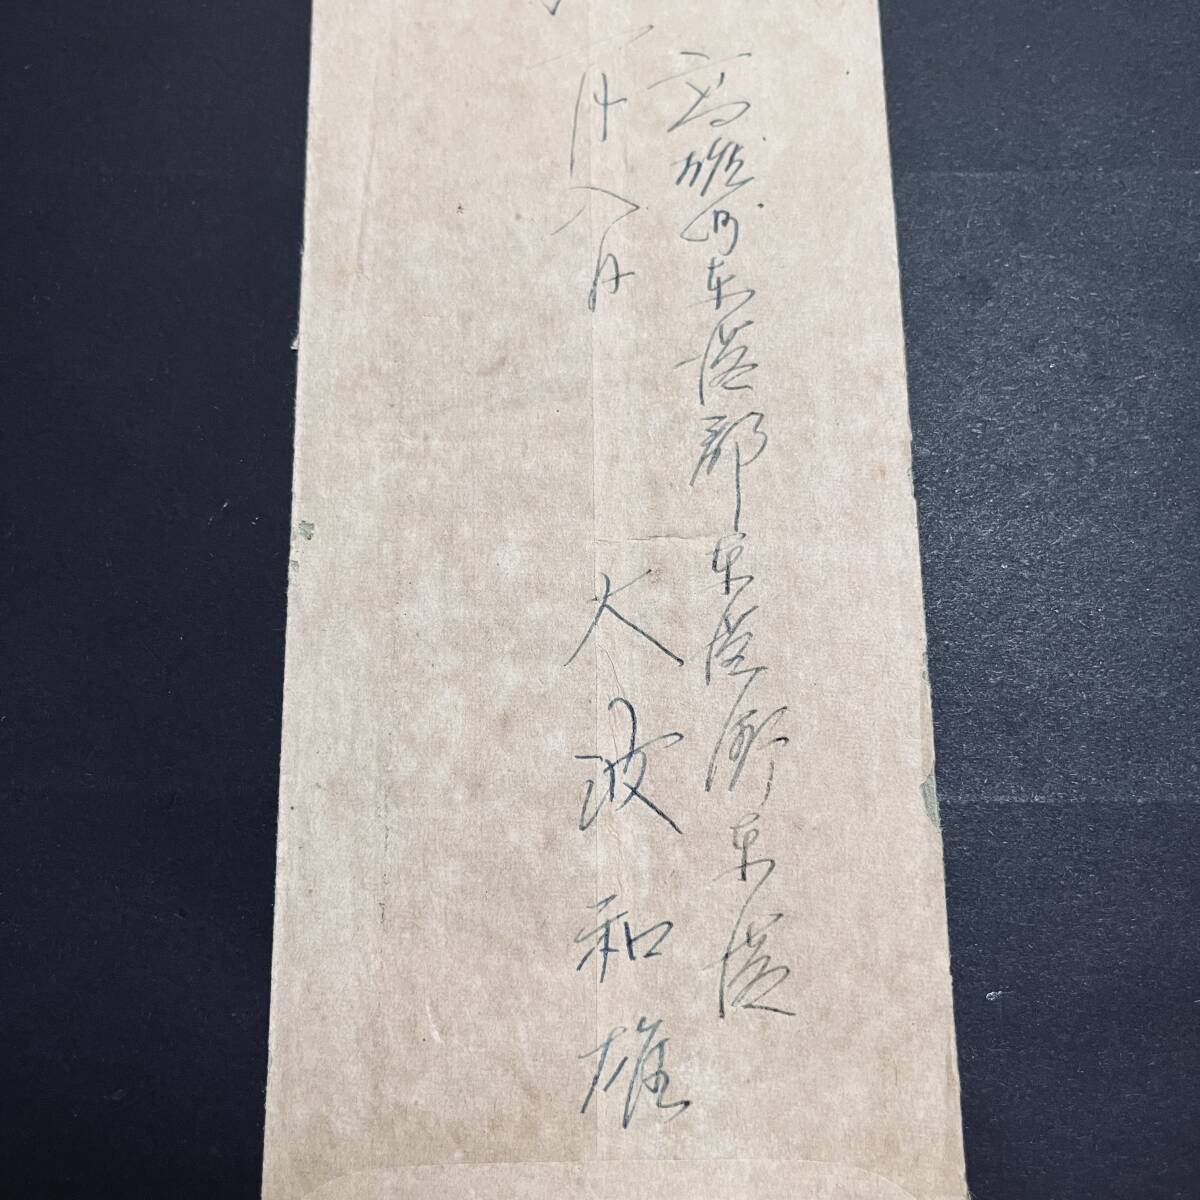 高雄州東港郡東港街東港
一月八日
大波和雄